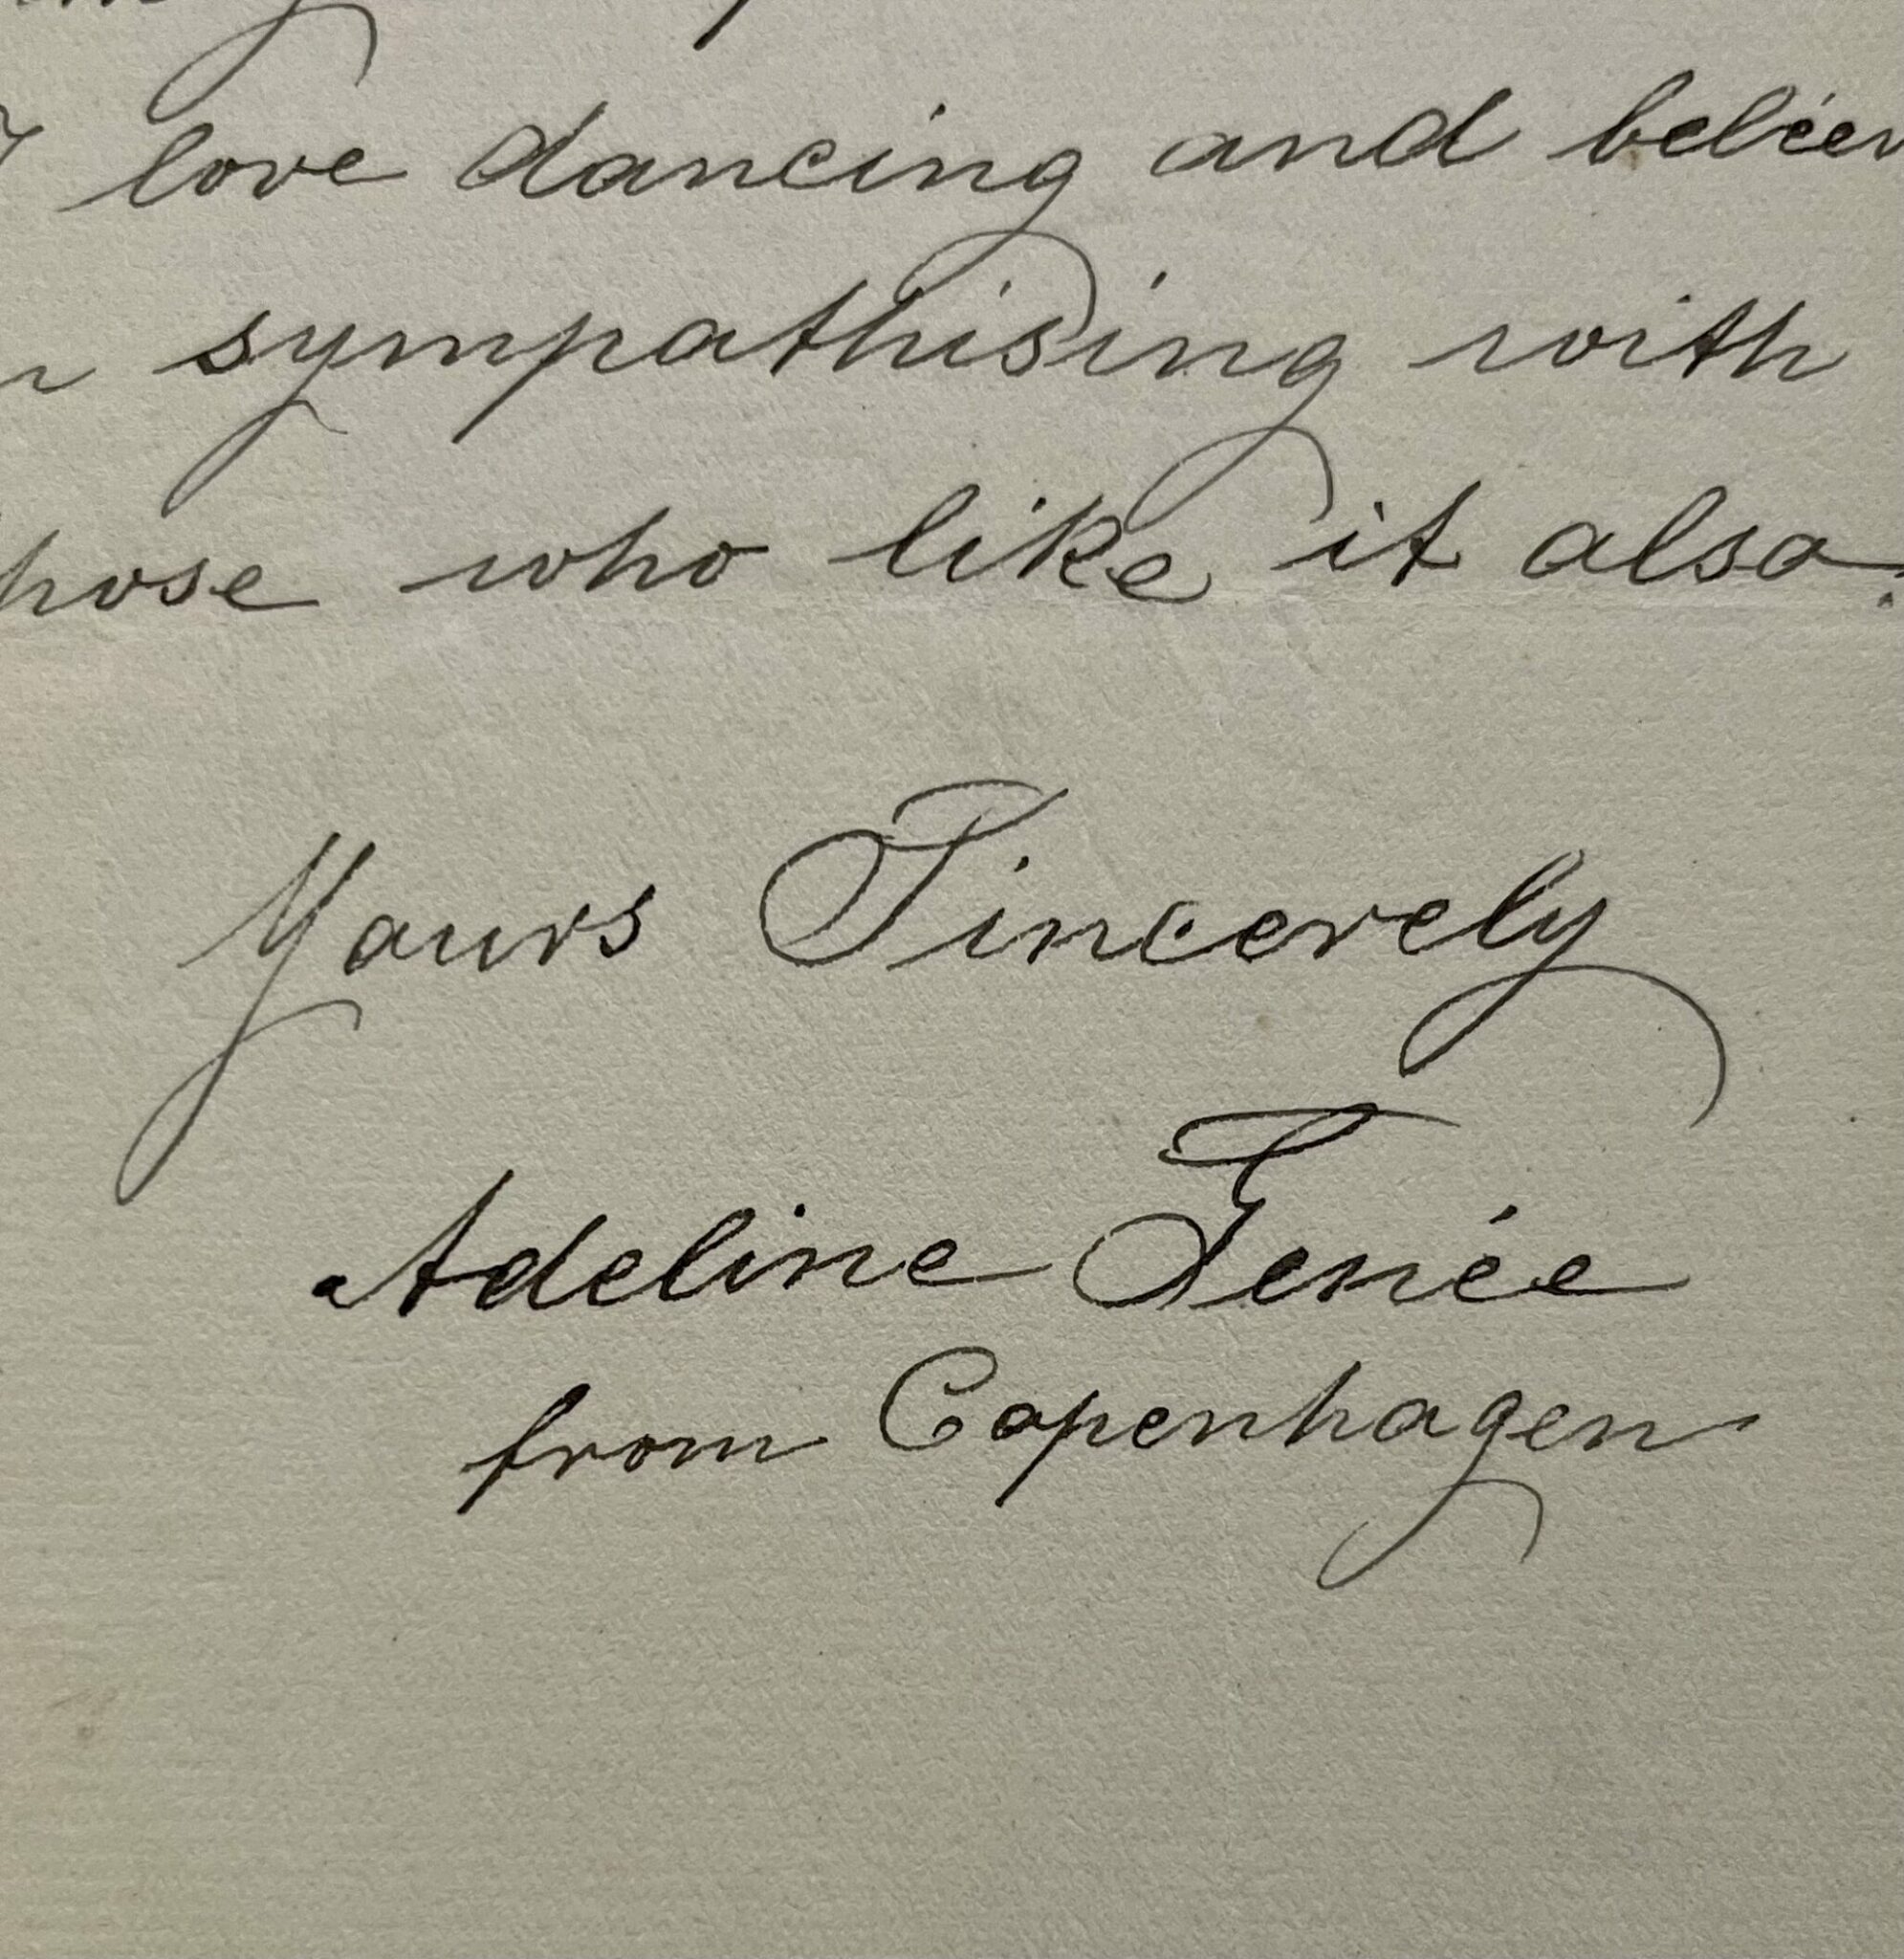 I love dancing and believ
sympathising with
hose who like it also.
Yours Sincerely
Adeline Genée
from Copenhagen